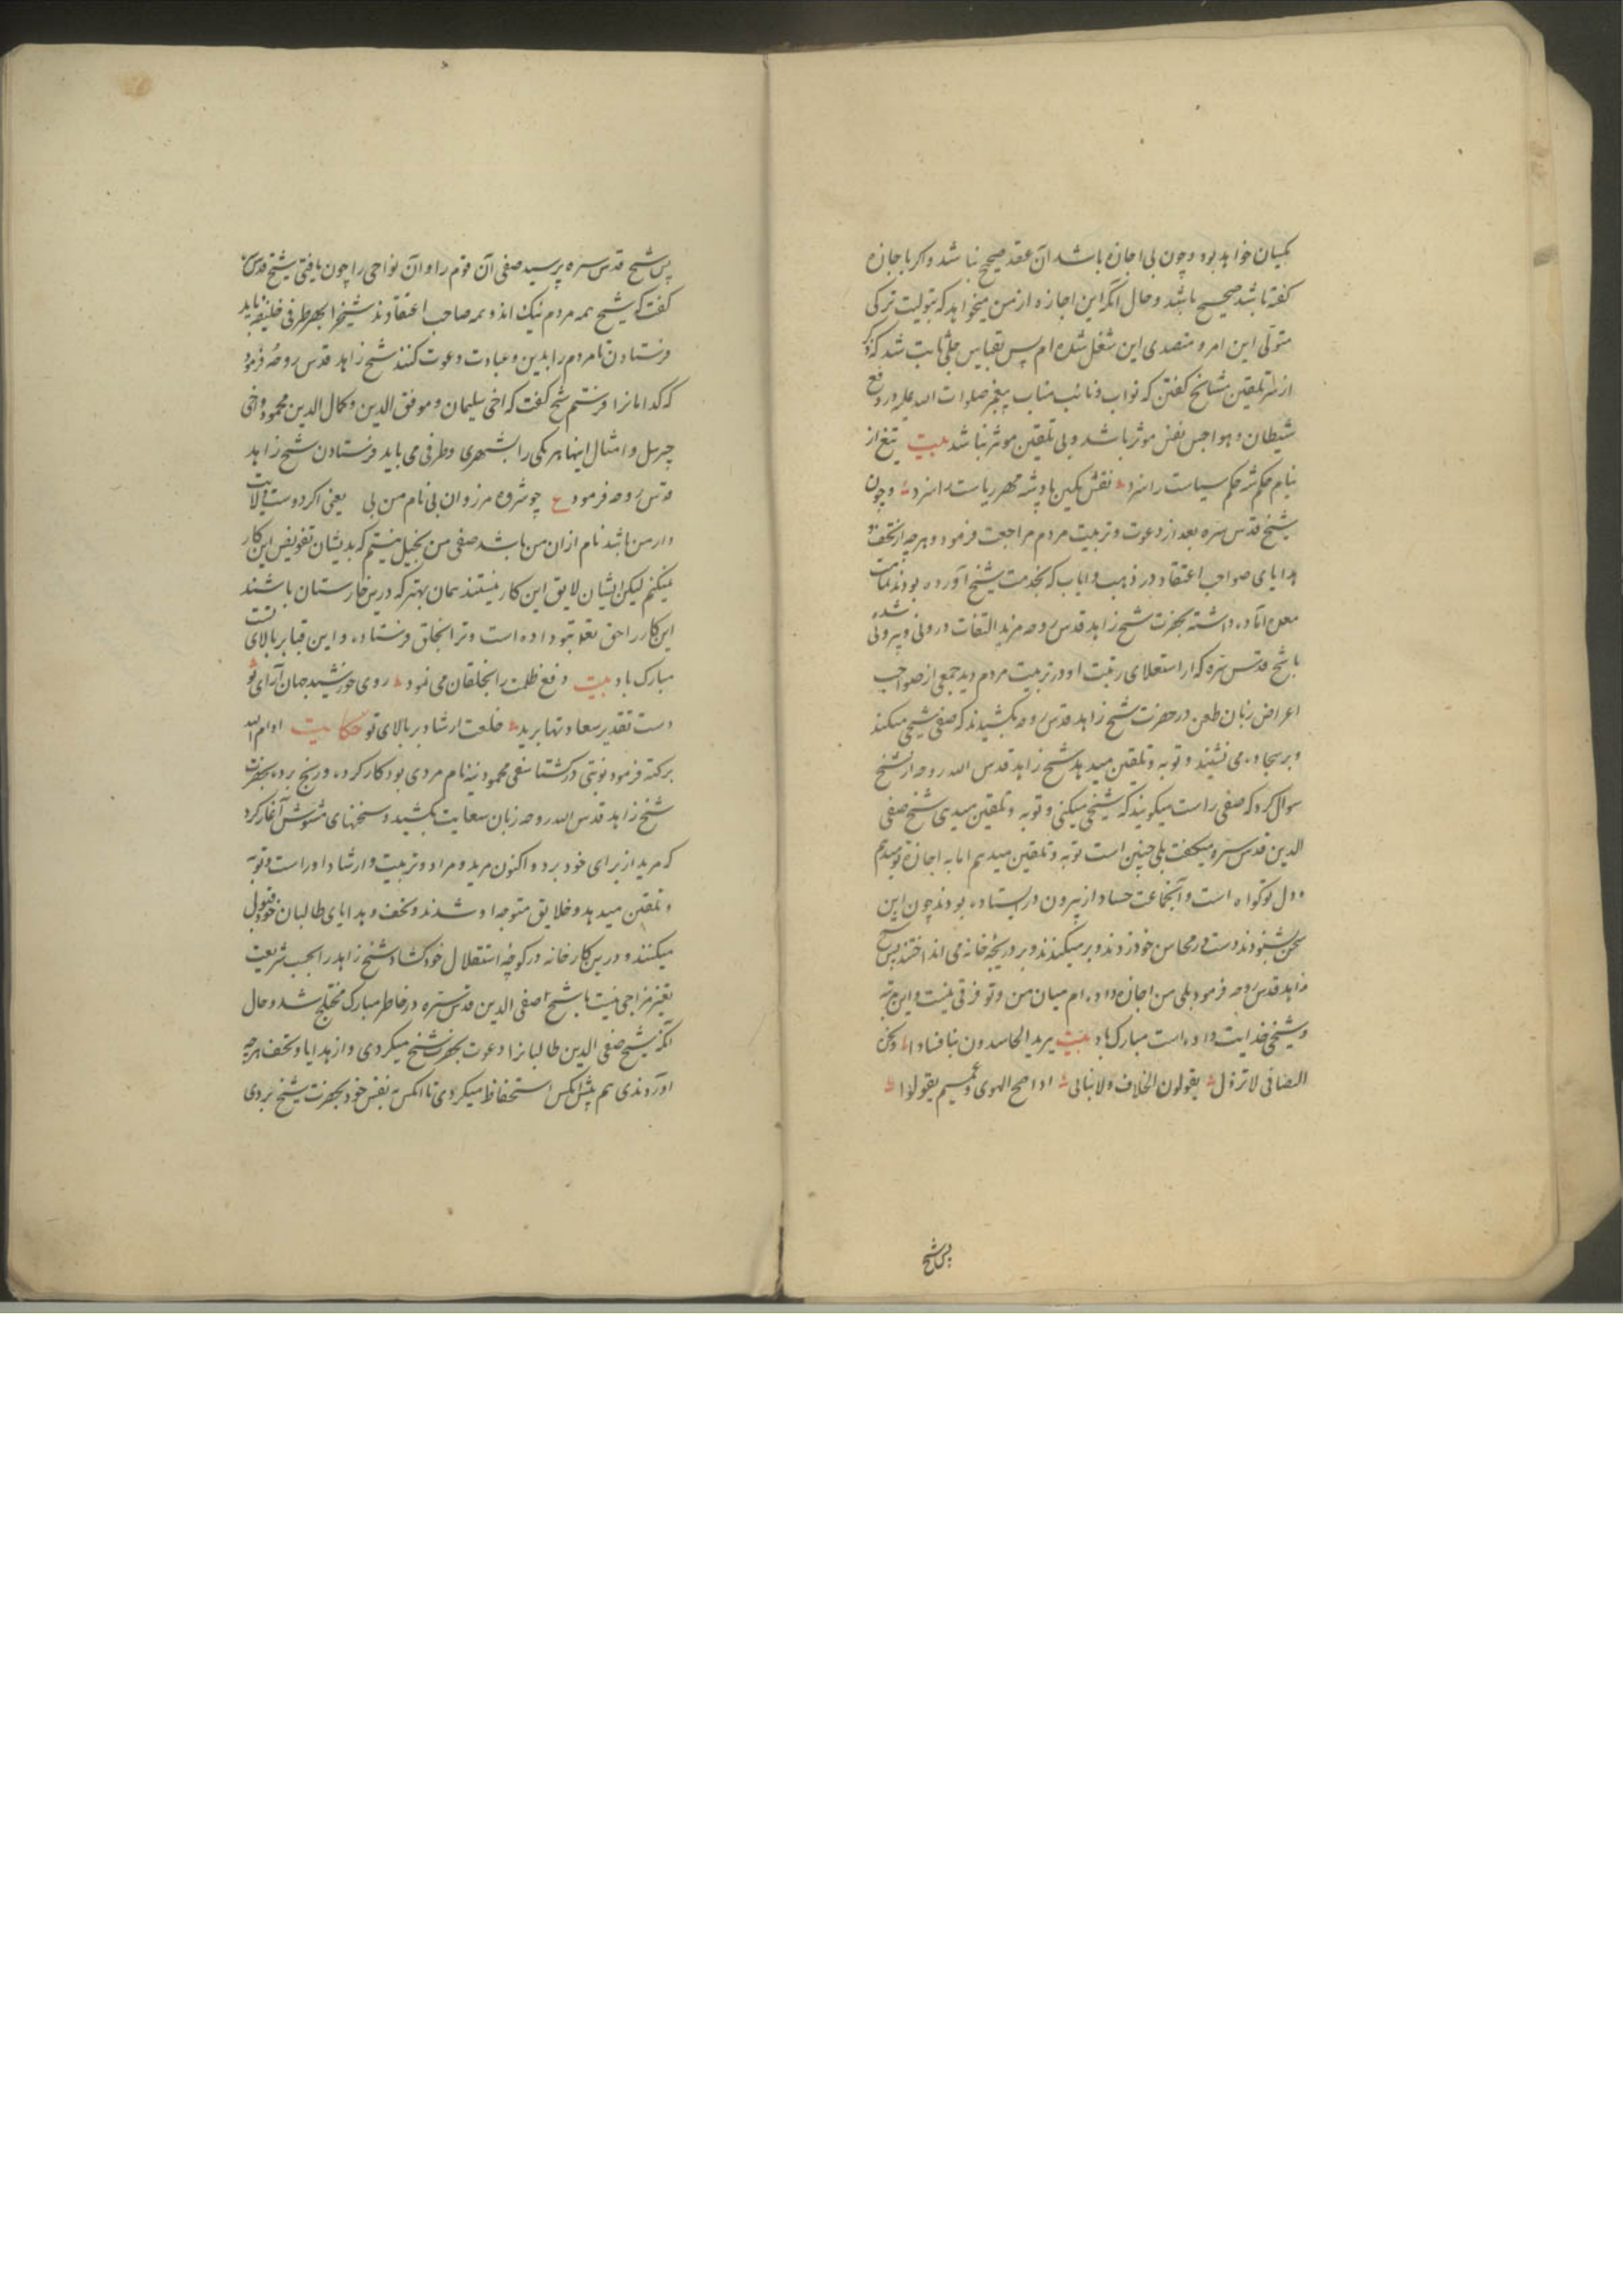 یکسان خواهد بود و چون بی اجازه باشد آن عقد صحیح نباشد و اگر باجازه
گفته باشد صحیح باشد و حال آنکه این اجازه از من میخواهد که بتولیت ترکی
متولی این امر و متصدی این شغل شده ام پس بقیاس جلی ثابت شد که ذکر
از سر تلقین مشایخ گفتن که نواب و نائب مناب پیغمبر صلوات الله علیه در دفع
شیطان و هواجس نفس موثر باشد و بی تلقین موثر نباشد بیت تیغ از
نیام حکم شه حکم سیاست راسزد نقش نگین پادشه مهر ریاست راسزد و چون
شیخ قدس سره بعد از دعوت و تربیت مردم مراجعت فرمود و هرچه از تحف و
هدایای صواحب اعتقاد در ذهب و ایاب که بخدمت شیخ آورده بودند
داشته بحضرت شیخ زاهد قدس روحه مزید التفات درونی و بیرونی شده
با شیخ قدس سره که از استعلای رتبت او در تربیت مردم دید جمعی از صواحب
اعراض زبان طعن در حضرت شیخ زاهد قدس روحه بکشیدند که صفی شیخی میکند
و بر سجاده می نشیند و توبه و تلقین میدهد شیخ زاهد قدس الله روحه از شیخ
سوال کرد که صفی راست میگویند که شیخی میکنی و توبه و تلقین میدی شیخ صفی
الدین قدس سره میگفت بلی چنین است توبه و تلقین میدهم اما به اجازة تو میدهم
و دل تو گواه است و آنجماعت حساد از بیرون در ایستاده بودند چون این
سخن بشنودند دست در محاسن خود زدند و بر میکندند و بر دریچه خانه می انداختند پس شیخ
زاهد قدس روحه فرمود بلی من اجازه داده ام میان من و تو فرقی نیست و این مرتبه
و شیخی خدایت داده است مبارک باد بیت یرید الحاسدون بنا فسادا
التصافی لا تزول یقولون الخلاف ولا نبالی اذا صح الهوی دعهم یقولوا
پس شیخ
پس شیخ قدس سره پرسید صفی آن قوم را و آن نواحی را چون یافتی شیخ قدس سره
گفت که شیخ همه مردم نیک اند و همه صاحب اعتقادند شیخ را بهر طرفی خلیفه باید
فرستادن تا مردم را بدین و عبادت دعوت کنند شیخ زاهد قدس روحه فرمود
که کدامانرا فرستم شیخ گفت که اخی سلیمان و موفق الدین و کمال الدین محمود و اخی
جبرئیل و امثال اینها هر یکی را بشهری و طرفی می باید فرستادن شیخ زاهد
قدس روحه فرمود ع چو شروه مرزوان بی نام من بی یعنی اگر دوست ولایت
دار من باشد نام از ان من باشد صفی من بخیل نیستم که بدیشان تفویض این کار
نمیکنم لیکن ایشان لایق این کار نیستند همان بهتر که درین خارستان باشند
این کار را حق تعالی بتو داده است و ترا بخلق فرستاده و این قبا بر بالای تست
مبارک باد بیت دفع ظلمت را بخلقان می نمود روی خورشید جهان آرای تو
دست تقدیر سعادتها برید خلعت ارشاد بر بالای تو حکایت ادام الله
برکته فرمود نوبتی در گشتاسفی محمودنیه نام مردی بود کار کرده و رنج برده بحضرت
شیخ زاهد قدس الله روحه زبان سعایت بکشید و سخنهای مشوش آغاز کرد
که مرید از برای خود برد و اکنون مرید و مراد و تربیت و ارشاد اوراست و توبه
و تلقین میدهد و خلایق متوجه او شدند و تحف و هدایای طالبان خود قبول
میکنند و درین کار خانه در کوچۀ استقلال خود گشاد شیخ زاهد را بحسب شریعت
تغیر مزاجی نیست با شیخ صفی الدین قدس سره در خاطر مبارک مختلج شد و حال
آنکه شیخ صفی الدین طالبانرا دعوت بحضرت شیخ میکردی و از هدایا و تحف هرچه
آوردندی هم پیش آنکس استحفاظ میکردی تا آنکس بنفس خود بحضرت شیخ بردی